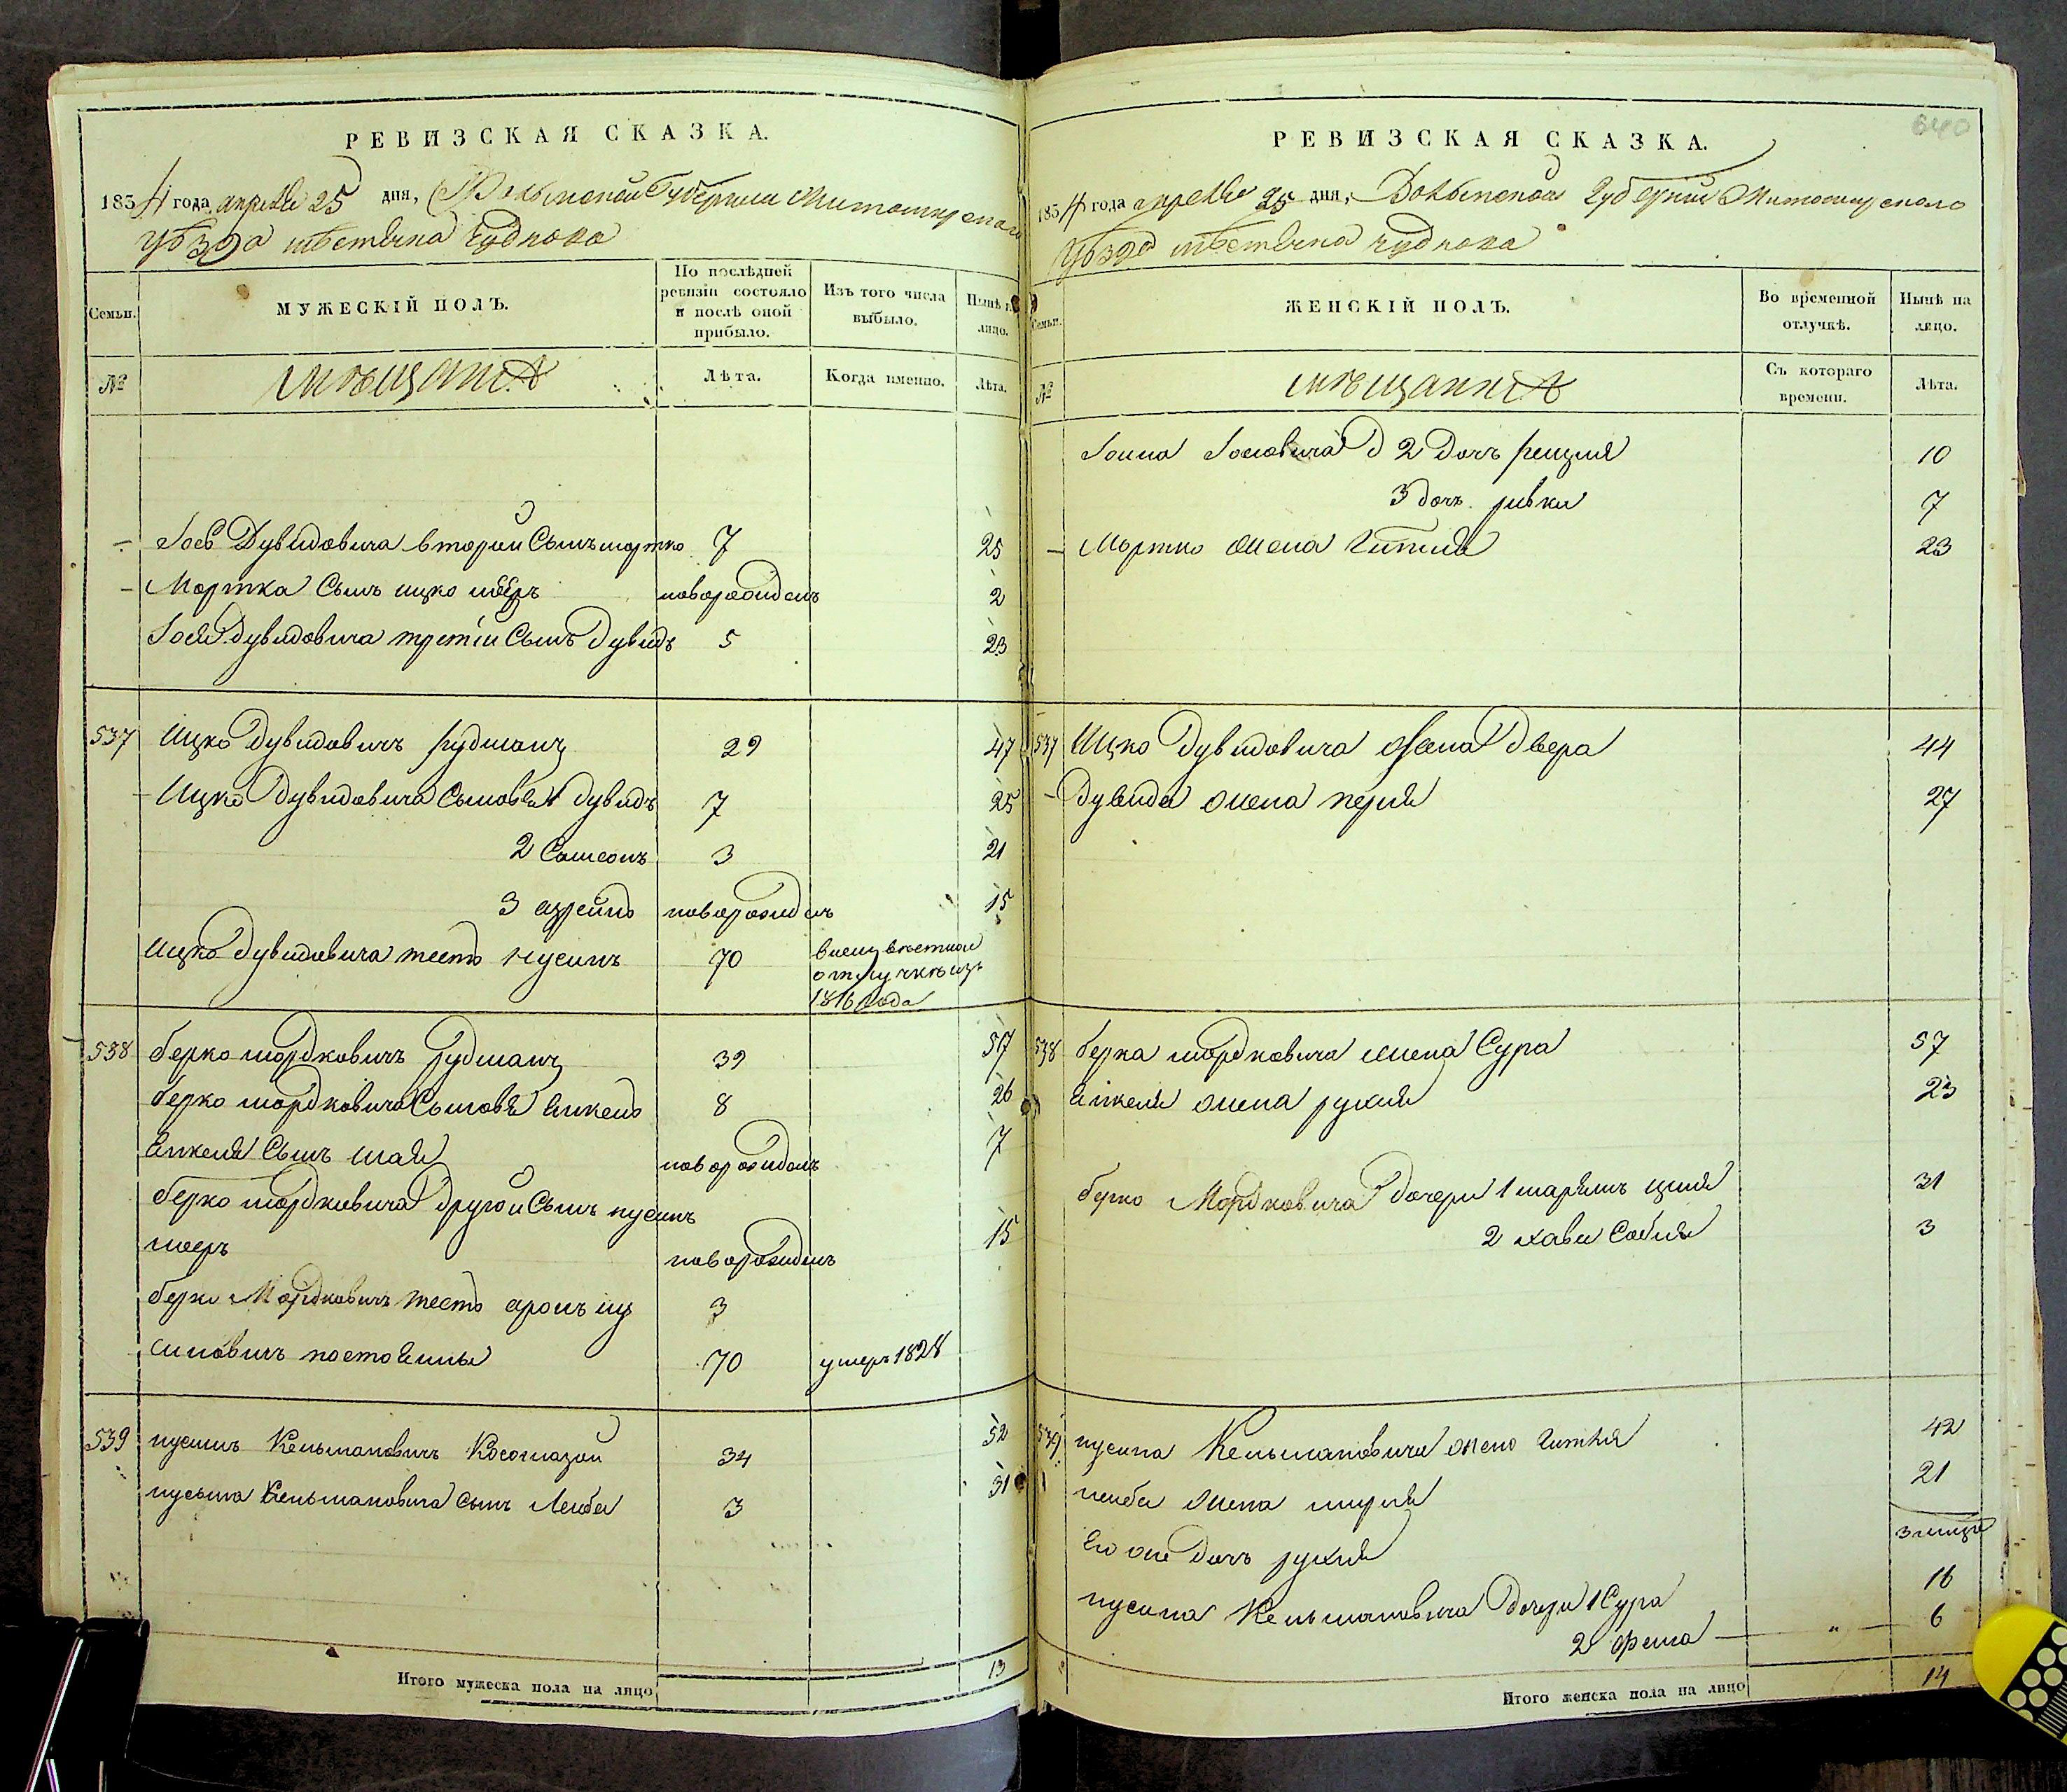 РЕВИЗСКАЯ СКАЗКА.
1854 года апреля 25 дня, Волынской Губернии Житомирскаго
уѣзда мѣстечка Чуднова
Семьи.
МУЖЕСКІЙ ПОЛЪ.
По послѣдней ревизіи состояло и послѣ оной прибыло.
Изъ того числа выбыло.
Нынѣ на лицо.
№
мѣщане
Лѣта.
Когда именно.
Лѣта.
Іося Дувидовича второй Сынъ мортко 7 25
Мортка Сынъ ицко новорожденъ 2
Іося Дувидовича третій Сынъ Дувидъ 5 23
537 Ицко Дувидовичъ 29 47
Ицко Дувидовича Сыновья 1 Дувидъ 7 25
2 Самсонъ 3 21
3 новорожденъ 15
Ицко Дувидовича тесть Нусинъ 70
отлучкѣ изъ
1816 года
538 берко мордковичъ 39 57
берко мордковича Сыновья Янкель 8 26
Янкеля Сынъ шая новорожденъ 7
берко мордковича Другой Сынъ нусинъ
мееръ новорожденъ 15
берко Мордковичъ тесть аронъ 3
70 умеръ 1828
539 нусинъ Кельмановичъ Косоглазой 34 52
нусина Кельмановича сынъ Лейба 3 31
Итого мужеска пола на лицо 13
640
РЕВИЗСКАЯ СКАЗКА.
1854 года апреля 25 дня, Волынской Губерніи Житомирскаго
уѣзда мѣстечка Чуднова
Семьи.
ЖЕНСКІЙ ПОЛЪ.
Во временной отлучкѣ.
Нынѣ на лицо.
№
мѣщанки
Съ котораго времени.
Лѣта.
2 Дочь 10
3 дочь ривка 7
Мортко жена Гитля 23
537 Ицко Дувидовича жена Двера 44
Дувида жена перля 27
538 берка мордковича жена Сура 57
Янкеля жена рухля 23
берко Мордковича дочери 1 31
2 3
539 нусина Кельмановича жена Гитля 42
лейба жена 21
Его же дочь рухля
нусина Кельмановича Дочери 1 Сура 16
2 фейга " 6
Итого женска пола на лицо 14